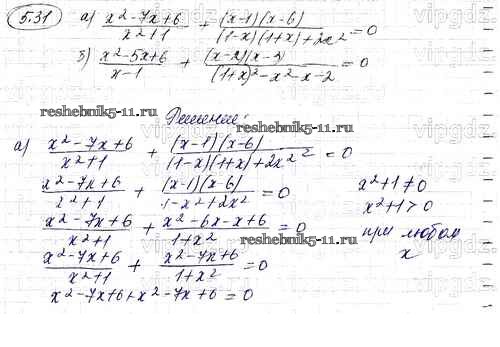 5.31 а) (x²-7x+6)/(x²+1) + (x-1)(x-6)/((1-x)(1+x)+2x²) = 0
б) (x²-5x+6)/(x-1) + (x-2)(x-3)/((1+x)²-x²-x-2) = 0
Решение:
reshebnik5-11.ru
reshebnik5-11.ru
а) (x²-7x+6)/(x²+1) + (x-1)(x-6)/((1-x)(1+x)+2x²) = 0
(x²-7x+6)/(x²+1) + (x-1)(x-6)/(1-x²+2x²) = 0 x²+1≠0
x²+1>0
(x²-7x+6)/(x²+1) + (x²-6x-x+6)/(1+x²) = 0 при любом
x
reshebnik5-11.ru
(x²-7x+6)/(x²+1) + (x²-7x+6)/(1+x²) = 0
x²-7x+6+x²-7x+6=0
vipgdz